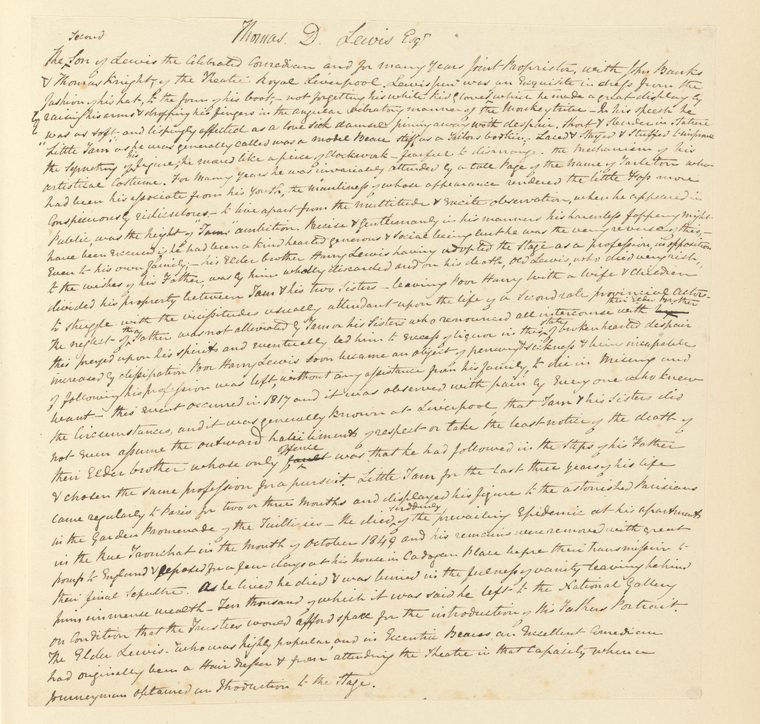 Thomas. D. Lewis Esqr
Second
The Son of Lewis the Celebrated Comedian and for many Years Joint Proprietor, with John Banks
& Thomas Knight, of the Theatre Royal Liverpool. Lewis was an Exquisite in dress from the
fashion of his hat, to the form of his boot, not forgetting his white kid gloves which he made a great display of by
raising his arms & dropping his fingers in the angular manner of the Monkey tribe. In his speech he
was as soft, and lispingly affected as a love sick damsel pining away with despair, Short & Slender in Stature
"Little Tam" as he was generally called was a model Beau stiff as a Tailors bodkin, Laced & Stayed & Stuffed to improve
the Symetry of his figure; he moved like a piece of Clockwork - fearful to disarrange the mechanism of his
artistical Costume. For Many Years he was invariably attended by a tall Page of the name of Tarleton who
had been his associate from his Youth, the manliness of whose appearance rendered the little Fop more
Conspicuously ridiculous - to live apart from the multitude & Excite observation, when he appeared in
Public, was the height of Tam's ambition. Precise & Gentlemanly in his manners his harmless foppery might
have been excused if he had been a kindhearted generous & Social being but he was the very reverse of this,
Even to his own family; - his Elder brother Harry Lewis having adopted the Stage as a profession, in opposition
to the wishes of his Father, was by him wholly discarded and on his death, Old Lewis, who died very rich,
divided his property between Tam & his two Sisters - leaving Poor Harry with a Wife & Children
to struggle with the vicissitudes usually attendant upon the life of a Second rate provincial Actor -
The neglect of the Father was not alleviated by Tam or his Sisters who renounced all intercourse with their Elder brother
this preyed upon his spirits and eventually led him to Excess of liquor in the state of brokenhearted despair
increased by dissipation Poor Harry Lewis soon became an object of penury & sickness & being incapable
of following his profession was left, without any assistance from his family, to die in Misery and
want - this Event occurred in 1817 and it was observed with pain by Every one who knew
the Circumstances, and it was generally known at Liverpool, that Tam & his Sisters did
not Even assume the outward habiliments of respect or take the least notice of the death of
their Elder brother whose only offence fault was that he had followed in the Steps of his Father
& chosen the same profession for a pursuit - Little Tam for the last three years of his life
came regularly to Paris for two or three Months and displayed his figure to the astonished Parisians
in the Garden Promenade of the Tuilleries - He died suddenly of the prevailing Epidemic at his apartments
in the Rue Tronchat in the Month of October 1849 and his remains were removed with great
pomp to England & reposed for a few days at his house in Cadogan Place before their transmission to
their final Sepulture. As he lived he died & was buried in the fulness of vanity leaving behind
him immense wealth - Ten thousand of which it was said he left to the National Gallery
on Condition that the Trustees would afford space for the introduction of His Fathers Portrait.
The Elder Lewis. Who was highly popular, and in Eccentric Beaus, an Excellent Comedian
had originally been a Hair Dresser & from attending the Theatre in that Capacity when a
Journeyman obtained an Introduction to the Stage.